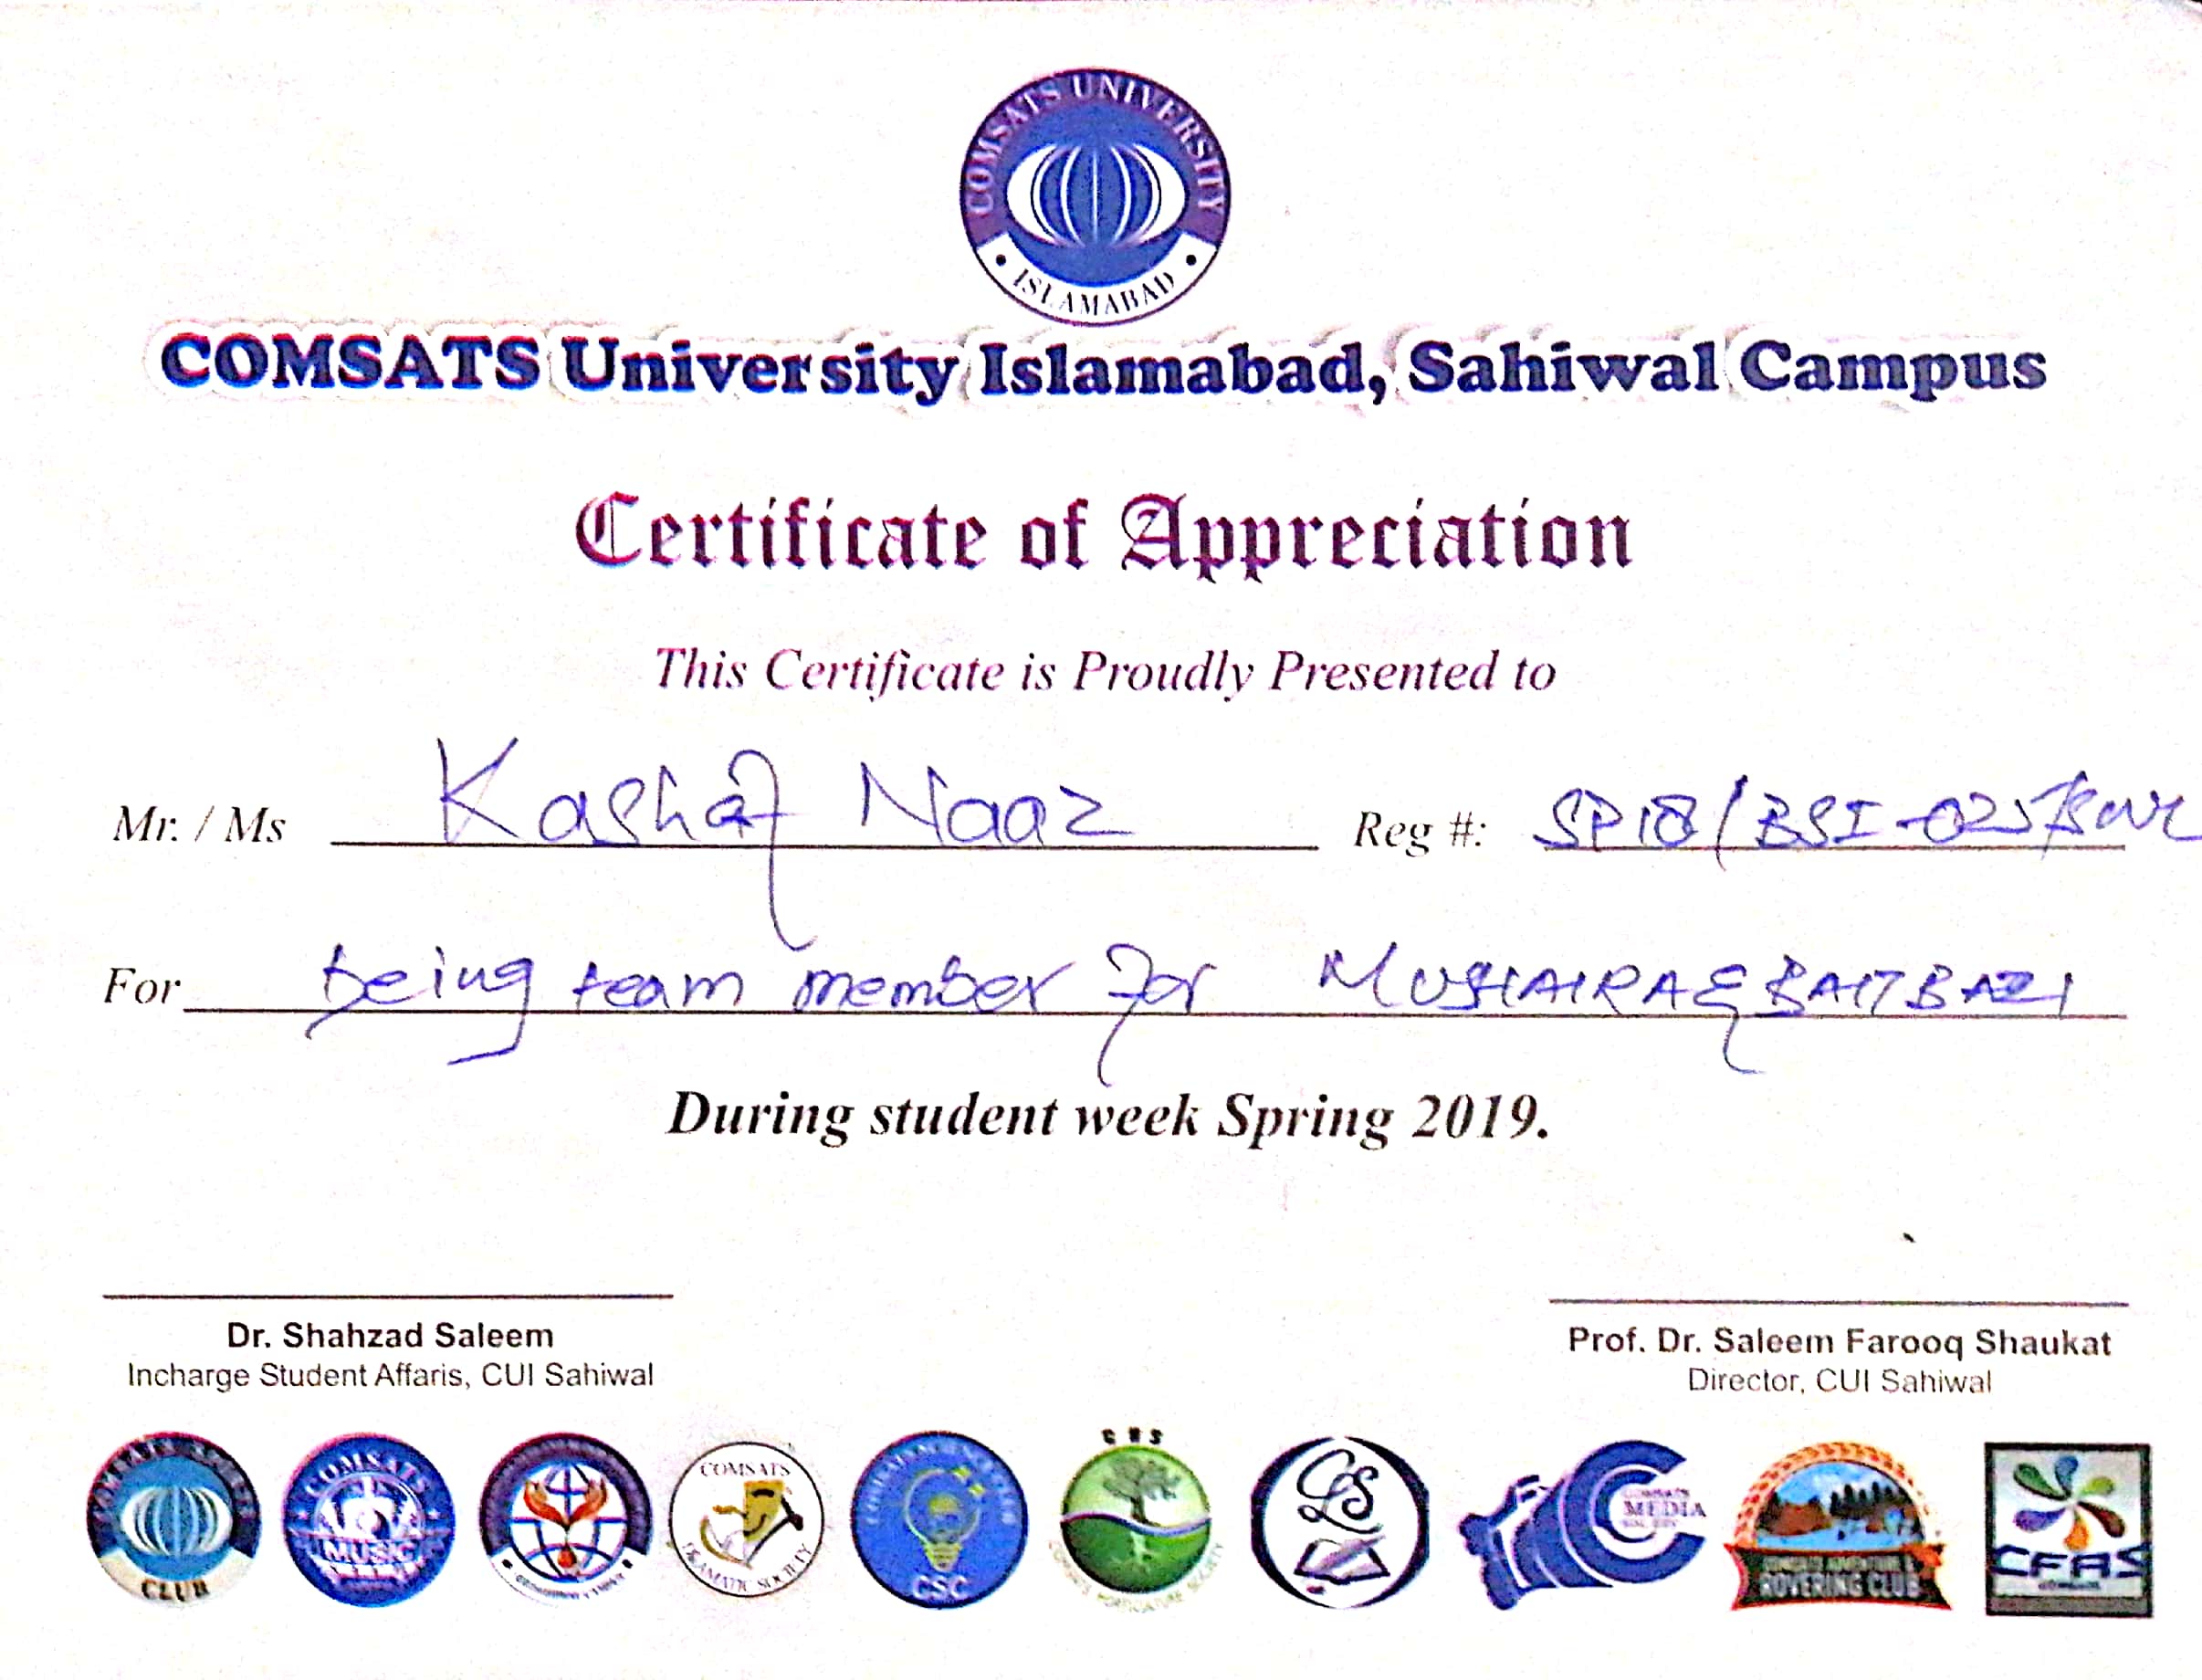 COMSATS UNIVERSITY
ISLAMABAD
COMSATS University Islamabad, Sahiwal Campus
Certificate of Appreciation
This Certificate is Proudly Presented to
Mr. / Ms Kashaf Naaz Reg #: SP18/BSI-025/SWL
For being team member for MUSHAIRA & BAIT BAZI
During student week Spring 2019.
Dr. Shahzad Saleem
Incharge Student Affaris, CUI Sahiwal
Prof. Dr. Saleem Farooq Shaukat
Director, CUI Sahiwal
CLUB
COMSATS
MUSIC
COMSATS
DRAMATIC SOCIETY
CSC
CHS
HORTICULTURE SOCIETY
CLS
MEDIA
ROVERING CLUB
CFAS